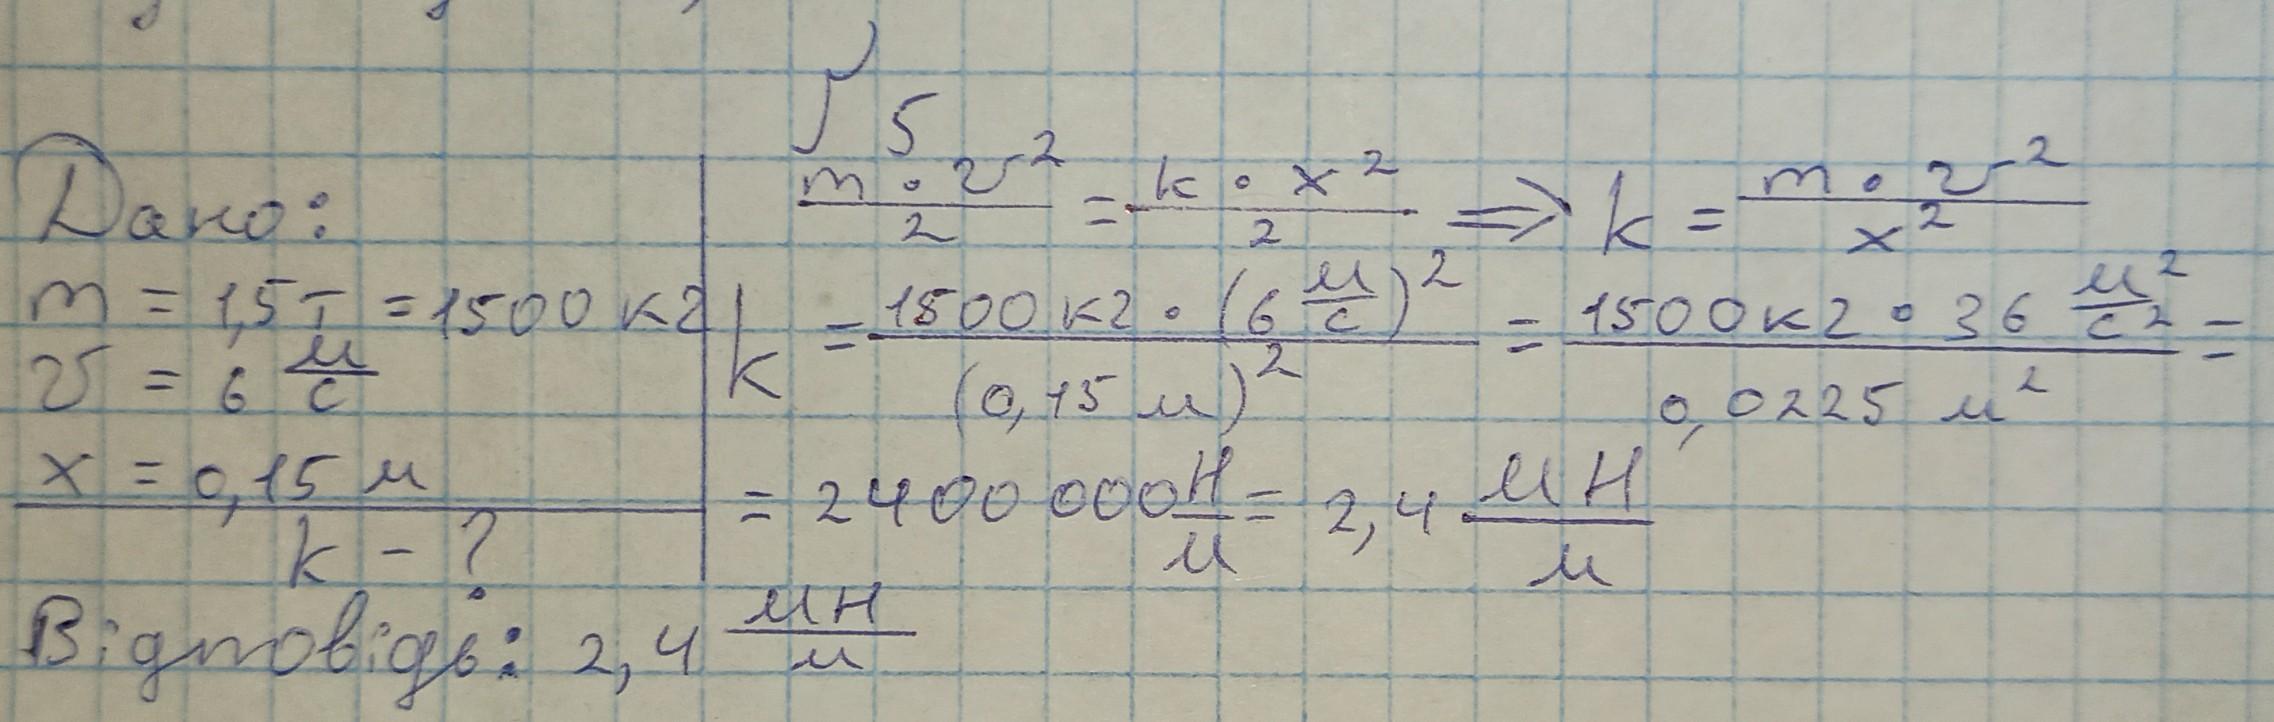 5
Дано:
m = 1,5 т = 1500 кг
v = 6 м/с
x = 0,15 м
k - ?
m · v²/2 = k · x²/2 ⇒ k = m · v²/x²
k = 1500 кг · (6 м/с)²/(0,15 м)² = 1500 кг · 36 м²/с²/0,0225 м² =
= 2400 000 Н/м = 2,4 мН/м
Відповідь: 2,4 мН/м